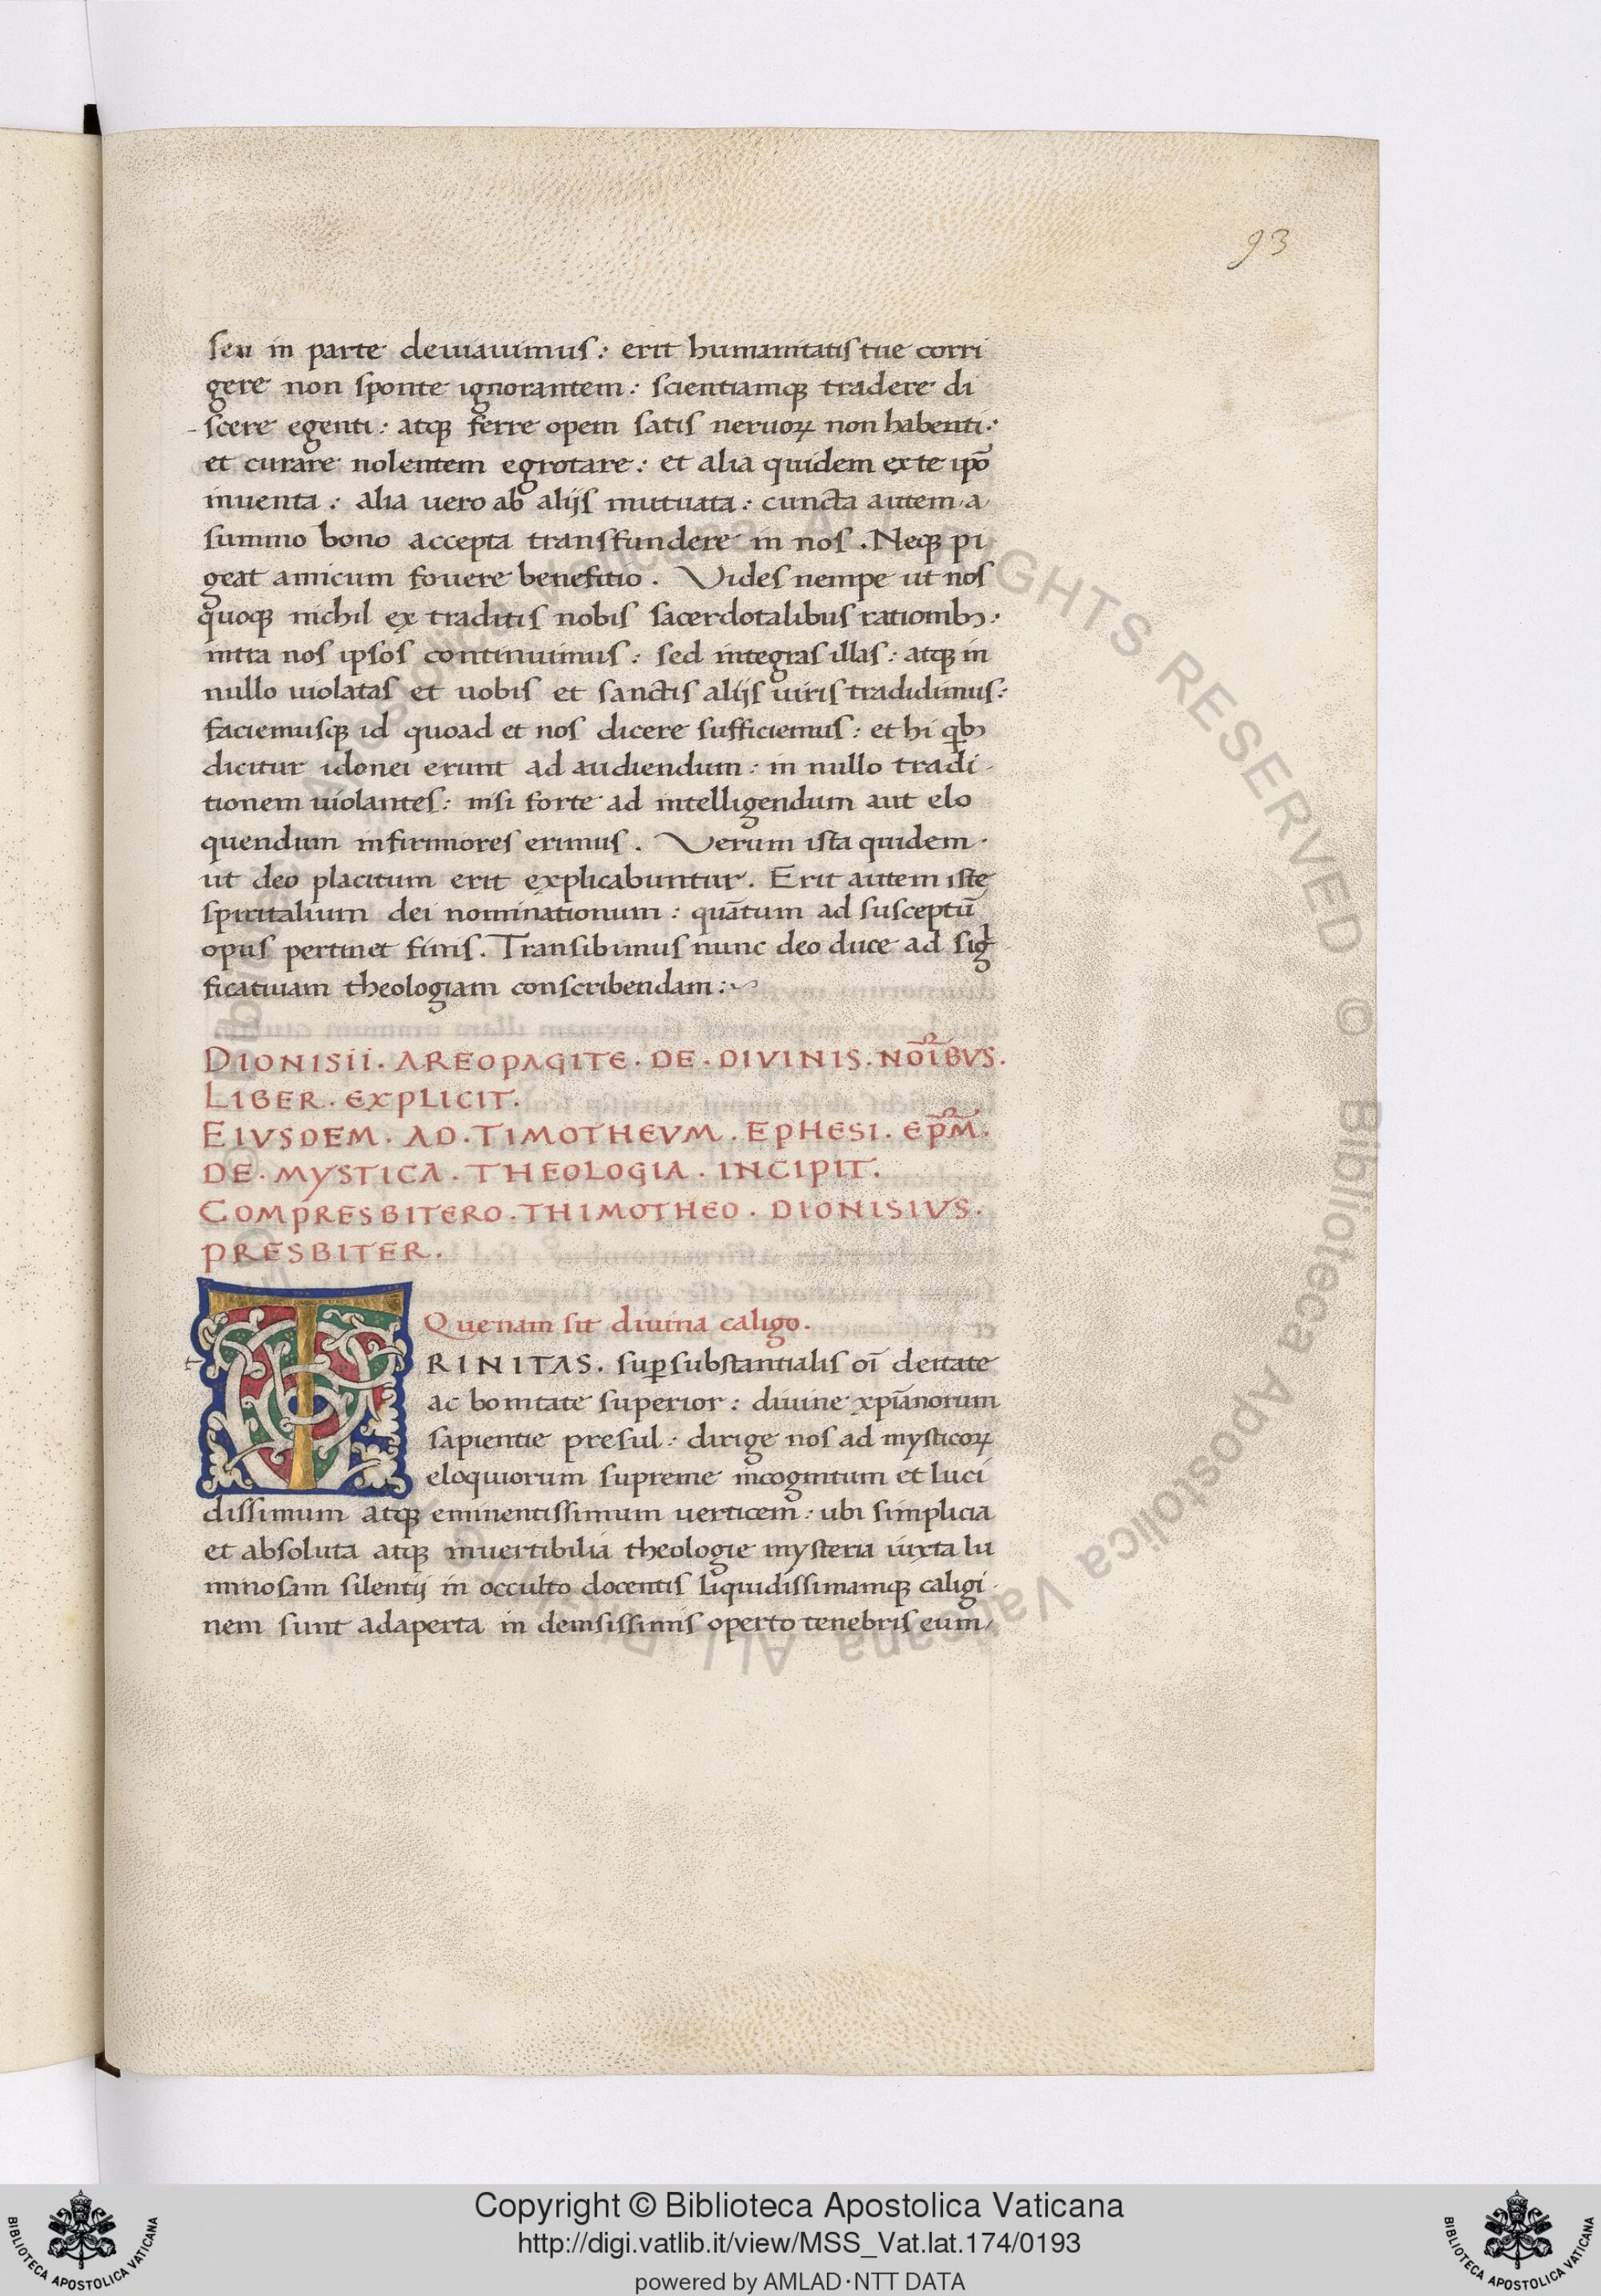 93
seu in parte deuiauimus: erit humanitatis tue corri
gere non sponte ignorantem: scientiamqꝫ tradere di
scere egenti: atqꝫ ferre opem satis neruoꝝ non habenti:
et curare nolentem egrotare: et alia quidem ex te ip̄o
inuenta: alia uero ab alijs mutuata: cuncta autem a
summo bono accepta transfundere in nos. Neqꝫ pi
geat amicum fouere benefitio. Vides nempe ut nos
quoqꝫ nichil ex traditis nobis sacerdotalibus rationibꝫ:
intra nos ipsos continuimus: sed integras illas: atqꝫ in
nullo uiolatas et uobis et sanctis alijs uiris tradidimus:
faciemusqꝫ id quoad et nos dicere sufficiemus: et hi qꝫbꝫ
dicitur idonei erunt ad audiendum: in nullo tradi-
tionem uiolantes: nisi forte ad intelligendum aut elo
quendum infirmiores erimus. Verum ista quidem
ut deo placitum erit explicabuntur. Erit autem iste
spiritalium dei nominationum: quātum ad susceptū
opus pertinet finis. Transibimus nunc deo duce ad sig
ficatiuam theologiam conscribendam:~
DIONISII. AREOPAGITE. DE. DIVINIS. NOĪBVS.
LIBER. EXPLICIT.
EIVSDEM. AD. TIMOTHEVM. EPHESI. EP̄M.
DE. MYSTICA. THEOLOGIA. INCIPIT.
COMPRESBITERO. THIMOTHEO. DIONISIVS.
PRESBITER.
Quenam sit diuina caligo.
TRINITAS. suꝑsubstantialis oī deitate
ac bonitate superior: diuine xp̄ianorum
sapientie presul: dirige nos ad mysticoꝝ
eloquiorum supreme incognitum et luci
dissimum atqꝫ eminentissimum uerticem: ubi simplicia
et absoluta atqꝫ inuertibilia theologie mysteria iuxta lu
minosam silentij in occulto docentis liquidissimamqꝫ caligi
nem sunt adaperta in densissimis operto tenebris eum
© Biblioteca Apostolica Vaticana ALL RIGHTS RESERVED
Copyright © Biblioteca Apostolica Vaticana
http://digi.vatlib.it/view/MSS_Vat.lat.174/0193
powered by AMLAD·NTT DATA
BIBLIOTECA APOSTOLICA VATICANA
BIBLIOTECA APOSTOLICA VATICANA